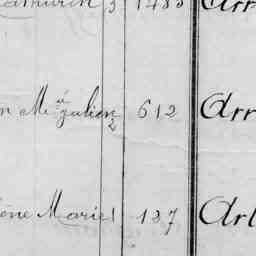 3 1485 Arr
n Mᵃ Julien 2 612 Arr
ène Marie 1 137 Arl